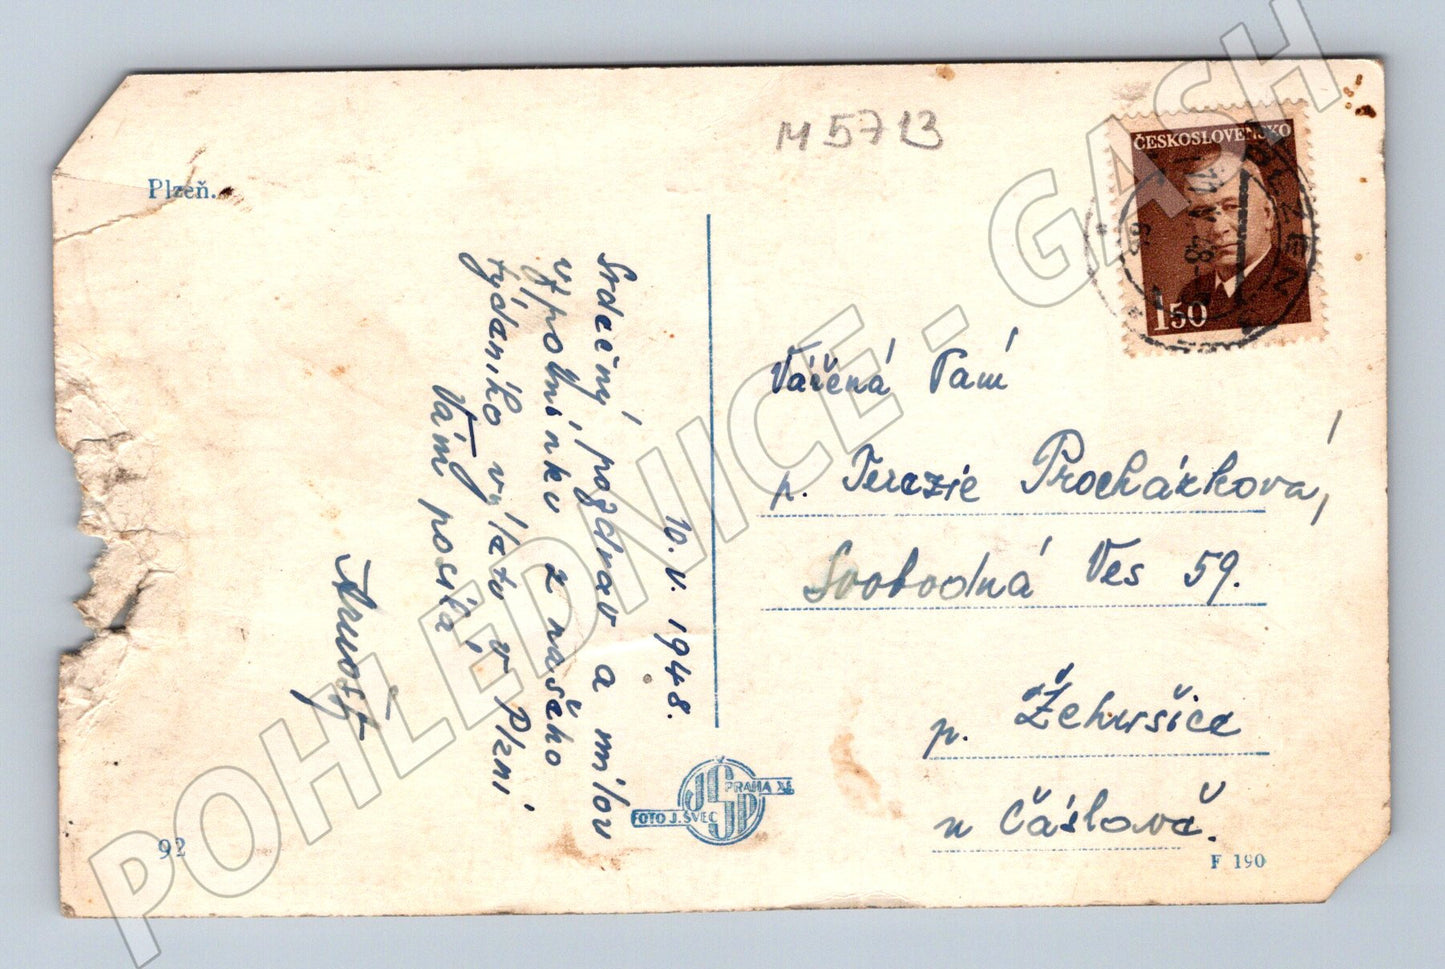 M 5713
Plzeň.
ČESKOSLOVENSKO
1'50
PLZEŇ
10. V. 48
10. V. 1948.
Srdečný pozdrav a milou
vzpomínku z našeho
týdeního výletu v Plzni
Vám posílá
Vážená Paní
p. Terezie Procházková,
Svobodná Ves 59.
p. Žehušice
u Čáslavě.
JŠP
PRAHA XI.
FOTO J. ŠVEC
92
F 190
POHLEDNICE - GASH